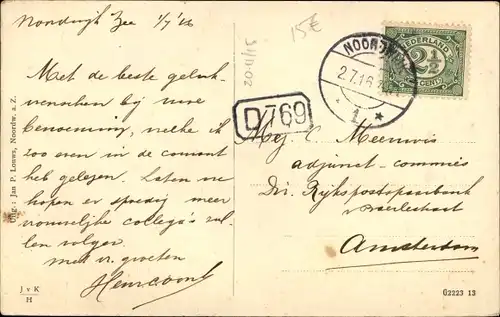 Noordwijk Zee 1/7 '16
Met de beste geluk-
wenschen bij uwe
benoeming, welke ik
zoo even in de courant
heb gelezen. Laten we
hopen er spoedig meer
vrouwelijke collega's zul-
len volgen.
met vr. groeten
Uitg.: Jan P. Louws, Noordw. a. Z.
J v K
H
15€
31/11-02
D 769
NOORDWIJK
2.7.16
1
NEDERLAND
2½
CENT
Mej. C. Meeuwis
adjunct-commies
Dir. Rijkspostspaarbank
Amsterdam
G2223 13